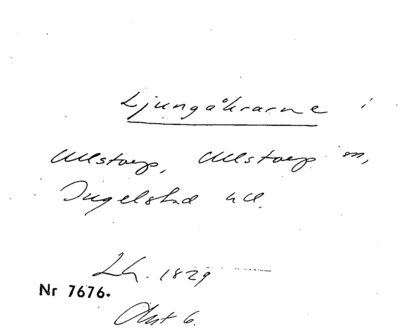 Ljungåkrarne i
Ullstorp, Ullstorp sn,
Ingelstad hd.
Lh. 1829
Nr 7676.
Akt 6.